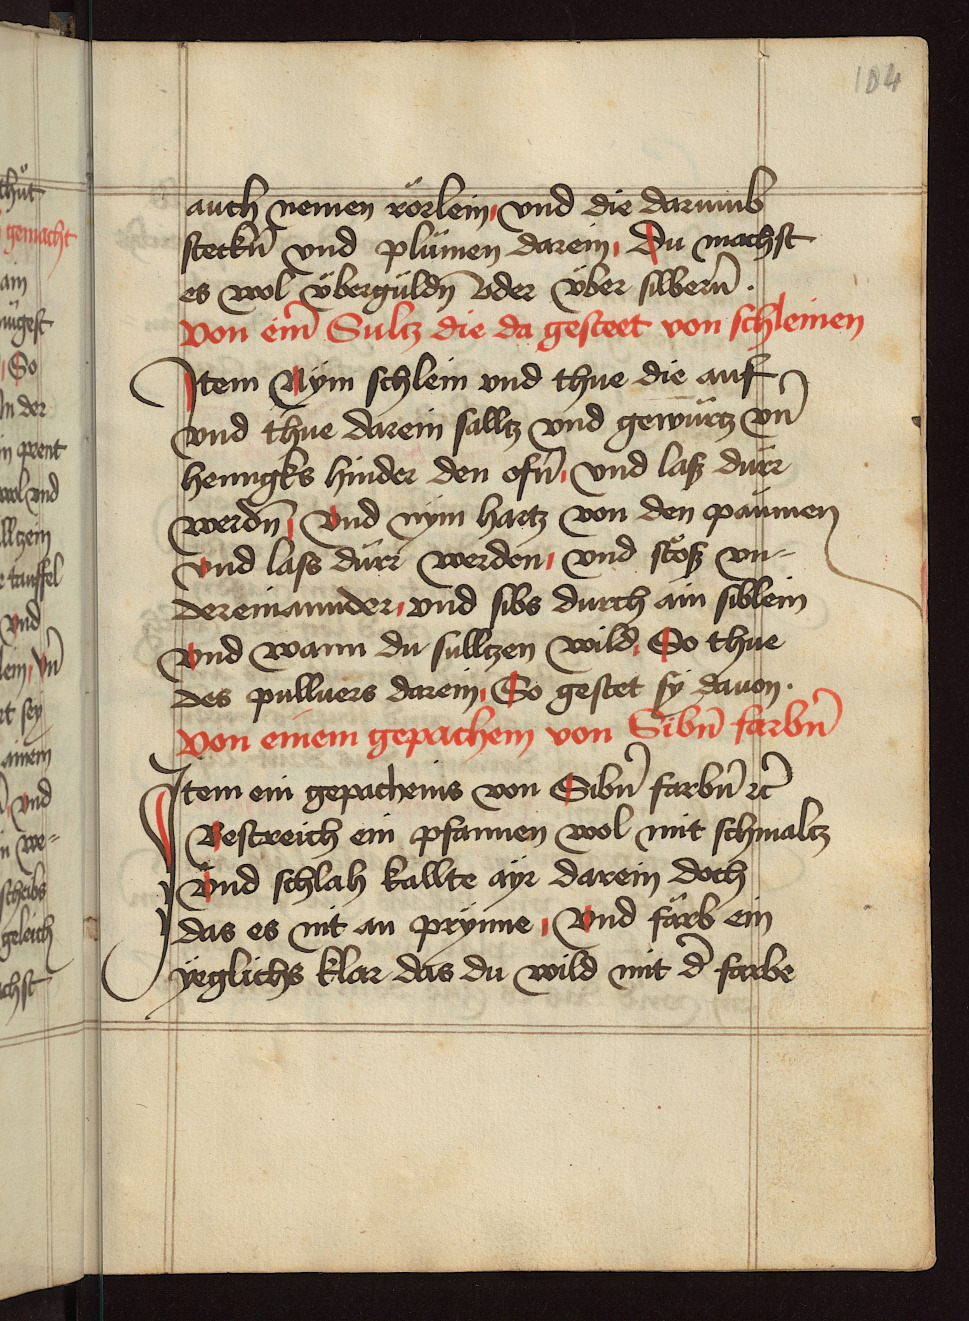 104
auch nemen rörlein, vnd die darumb
steckn̄ vnd plümen darein, Du machst
es wol v̈bergüldn̄ oder v̈ber silbern̄.
Von eim̄ Sultz die da gesteet von schleinen
Item Nÿm schlein vnd thue die auf
vnd thue darein salltz vnd gewürtz vn̄
henngks hinder den ofn̄, vnd laß dürr
werdn̄, vnd nÿm hartz von den paümen
vnd lass dürr werden, vnd stöß vn-
dereinannder, vnd sibs durch ain siblein
vnd wann du sulltzen wild, So thue
des pulluers darein, So gestet sÿ dauon.
Von einem gepachem von Sibn̄ farbn̄
Item ein gepachens von Sibn̄ farbn̄ ꝛc̄
Bestreich ein pfannen wol mit schmaltz
vnd schlah kallte aÿr darein doch
das es nit an prÿnne, vnd färb ein
ÿeglichs klar das du wild mit d̄ farbe